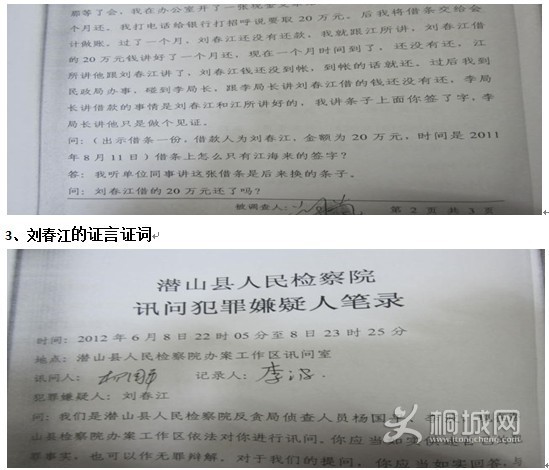 那等了会，我在办公室开了一张现金支票
个月还。我打电话给银行打招呼说要取 20 万元。后我将借条交给会
计做账。过了一个月，刘春江还没有还款，我就跟江所讲，刘春江借
的 20 万元钱讲好了一个月还，现在一个月时间到了，还没有还，江
所讲他跟刘春江讲了，刘春江钱还没到帐，到帐的话就还。过后我到
民政局办事，碰到李局长，跟李局长讲刘春江借的钱还没有还，李局
长讲借款的事情是刘春江和江所讲好的，我讲条子上面你签了字，李
局长讲他只是做个见证。
问：（出示借条一份，借款人为刘春江，金额为 20 万元，时间是 2011
年 8 月 11 日）借条上怎么只有江海来的签字？
答：我听单位同事讲这张借条是后来换的条子。
问：刘春江借的 20 万元还了吗？
被调查人： 第 2 页 共 3 页
3、刘春江的证言证词
潜山县人民检察院
讯问犯罪嫌疑人笔录
时间：2012 年 6 月 8 日 22 时 05 分至 8 日 23 时 25 分
地点：潜山县人民检察院办案工作区讯问室
讯问人： 记录人：
犯罪嫌疑人：刘春江
问：我们是潜山县人民检察院反贪局侦查人员杨国
山县检察院办案工作区依法对你进行讯问。你应当如实
罪事实，也可以作无罪辩解，对于我们的提问，你应当如实回答，与
桐城网
www.itongcheng.com